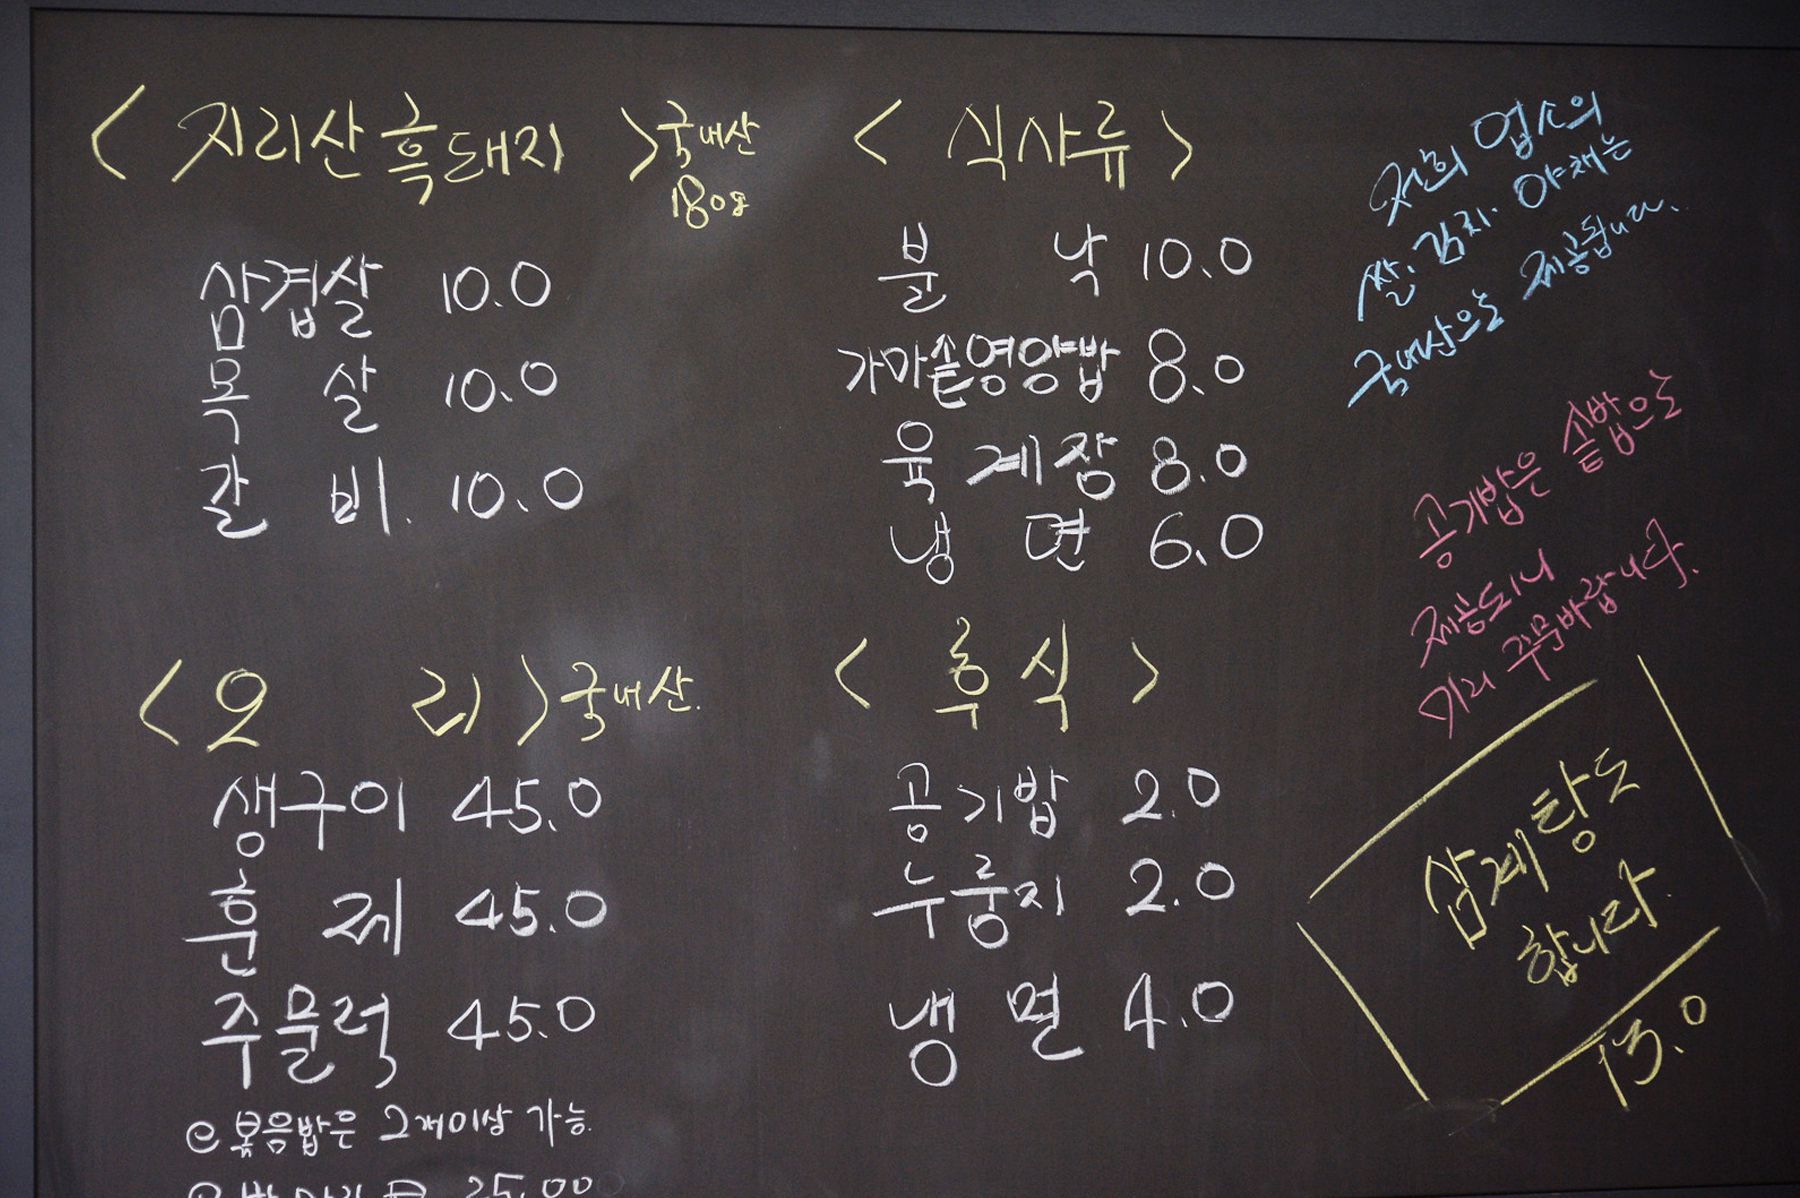 < 지리산흑돼지 > 국내산
180g
삼겹살 10.0
목 살 10.0
갈 비. 10.0
< 오 리 > 국내산.
생구이 45.0
훈 제 45.0
주물럭 45.0
볶음밥은 2개이상 가능.
25.00
< 식사류 >
불 낙 10.0
가마솥영양밥 8.0
육 계장 8.0
냉 면 6.0
< 후 식 >
공기밥 2.0
누룽지 2.0
냉 면 4.0
저희 업소의
쌀. 김치. 야채는
국내산으로 제공됩니다..
공기밥은 솥밥으로
제공되니
미리 주문바랍니다.
삼계탕도
합니다.
13.0